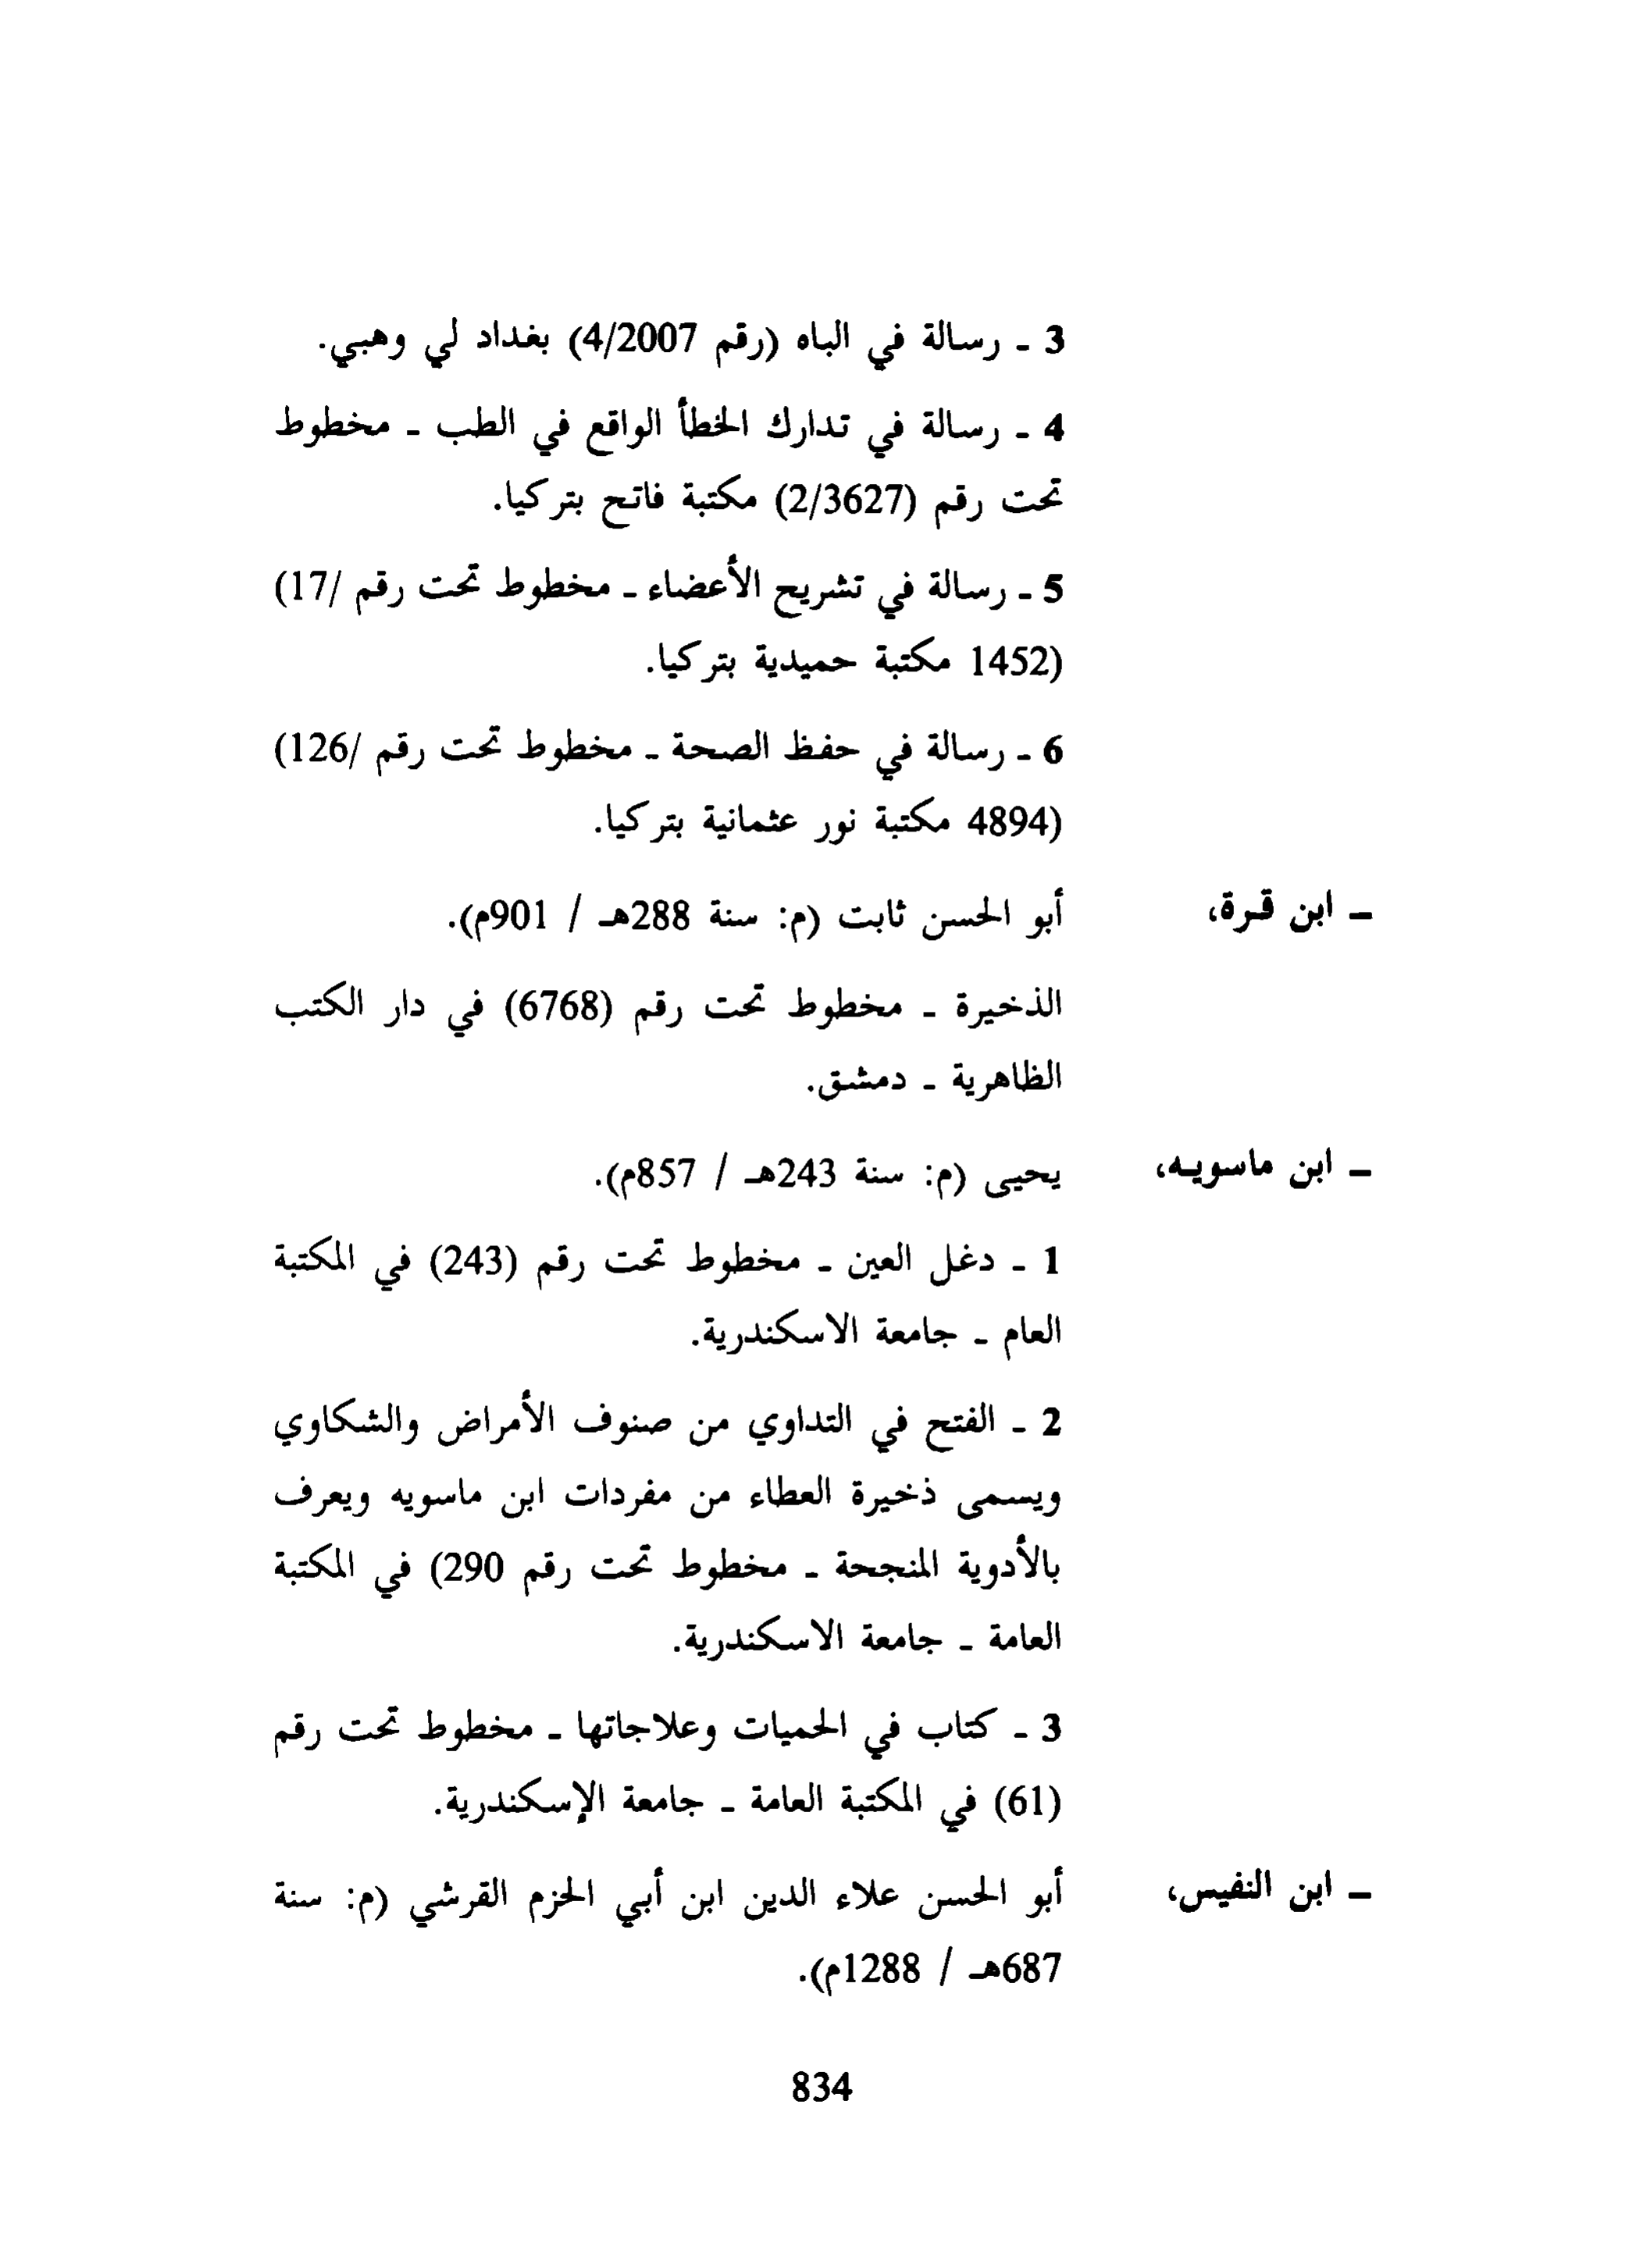 3 ـ رسالة في الباه (رقم 4/2007) بغداد لي وهبي.
4 ـ رسالة في تدارك الخطأ الواقع في الطب ـ مخطوط
تحت رقم (2/3627) مكتبة فاتح بتركيا.
5 ـ رسالة في تشريح الأعضاء ـ مخطوط تحت رقم /17)
(1452 مكتبة حميدية بتركيا.
6 ـ رسالة في حفظ الصحة ـ مخطوط تحت رقم /126)
(4894 مكتبة نور عثمانية بتركيا.
ـ ابن قرة، أبو الحسن ثابت (م: سنة 288هـ / 901م).
الذخيرة ـ مخطوط تحت رقم (6768) في دار الكتب
الظاهرية ـ دمشق.
ـ ابن ماسويه، يحيى (م: سنة 243هـ / 857م).
1 ـ دغل العين ـ مخطوط تحت رقم (243) في المكتبة
العام ـ جامعة الاسكندرية.
2 ـ الفتح في التداوي من صنوف الأمراض والشكاوي
ويسمى ذخيرة العطاء من مفردات ابن ماسويه ويعرف
بالأدوية المنجحة ـ مخطوط تحت رقم 290) في المكتبة
العامة ـ جامعة الاسكندرية.
3 ـ كتاب في الحميات وعلاجاتها ـ مخطوط تحت رقم
(61) في المكتبة العامة ـ جامعة الإسكندرية.
ـ ابن النفيس، أبو الحسن علاء الدين ابن أبي الحزم القرشي (م: سنة
687هـ / 1288م).
834